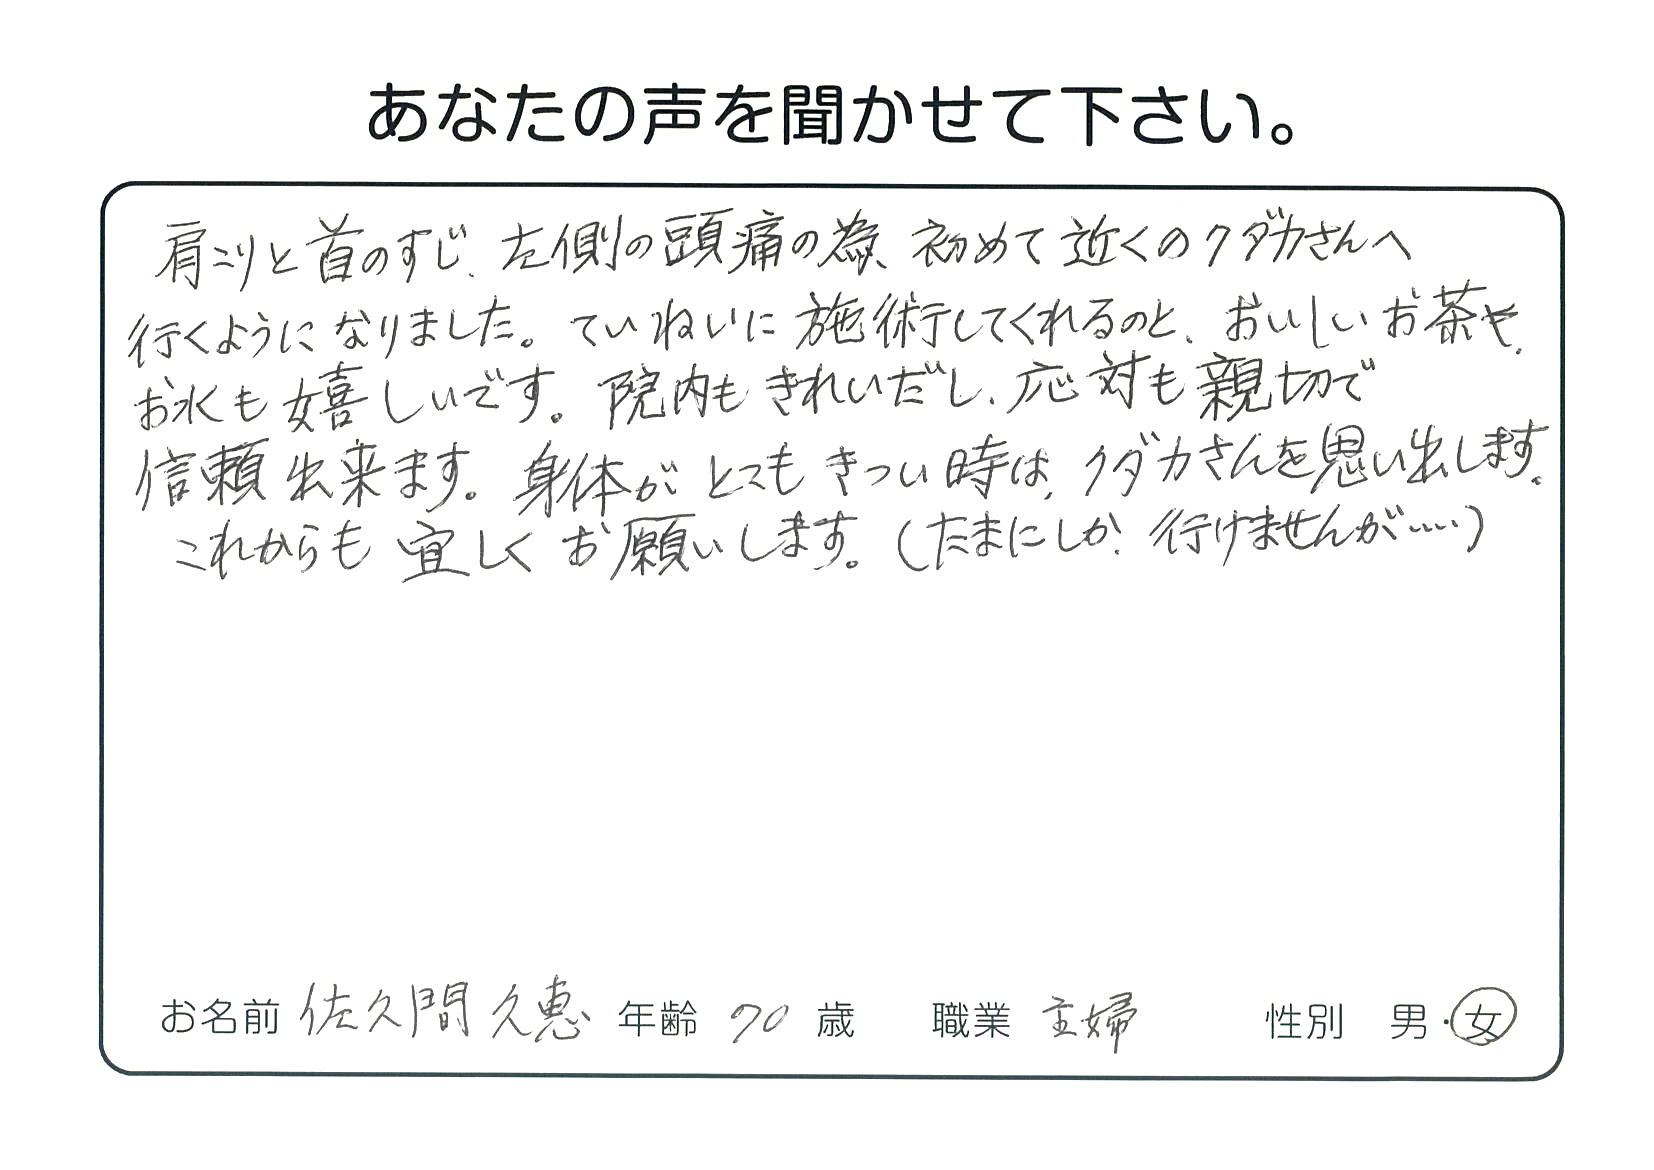 あなたの声を聞かせて下さい。
肩こりと首のすじ、左側の頭痛の為、初めて近くのクダカさんへ
行くようになりました。ていねいに施術してくれるのと、おいしいお茶や、
お水も嬉しいです。院内もきれいだし、応対も親切で
信頼出来ます。身体がとってもきつい時は、クダカさんを思い出します。
これからも宜しくお願いします。(たまにしか、行けませんが……)
お名前 佐久間 久恵 年齢 70 歳 職業 主婦 性別 男・女